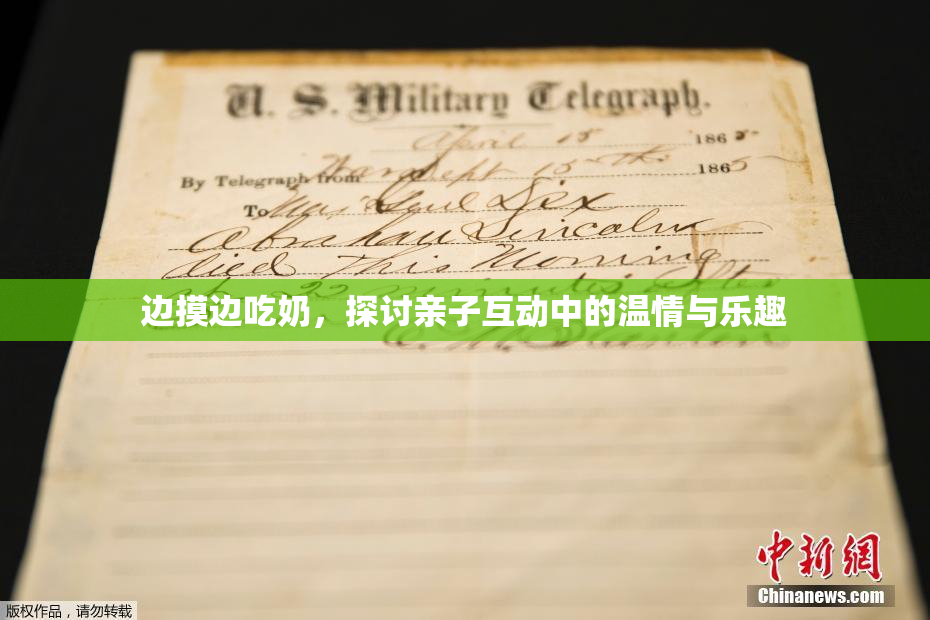 U. S. Military Telegraph.
April 15 1865
By Telegraph from War Dept 15th 1865
To Maj Genl Dix
Abraham Lincoln
died This Morning
at 22 minutes after
边摸边吃奶，探讨亲子互动中的温情与乐趣
E. M. Stanton
中新网
Chinanews.com
版权作品，请勿转载